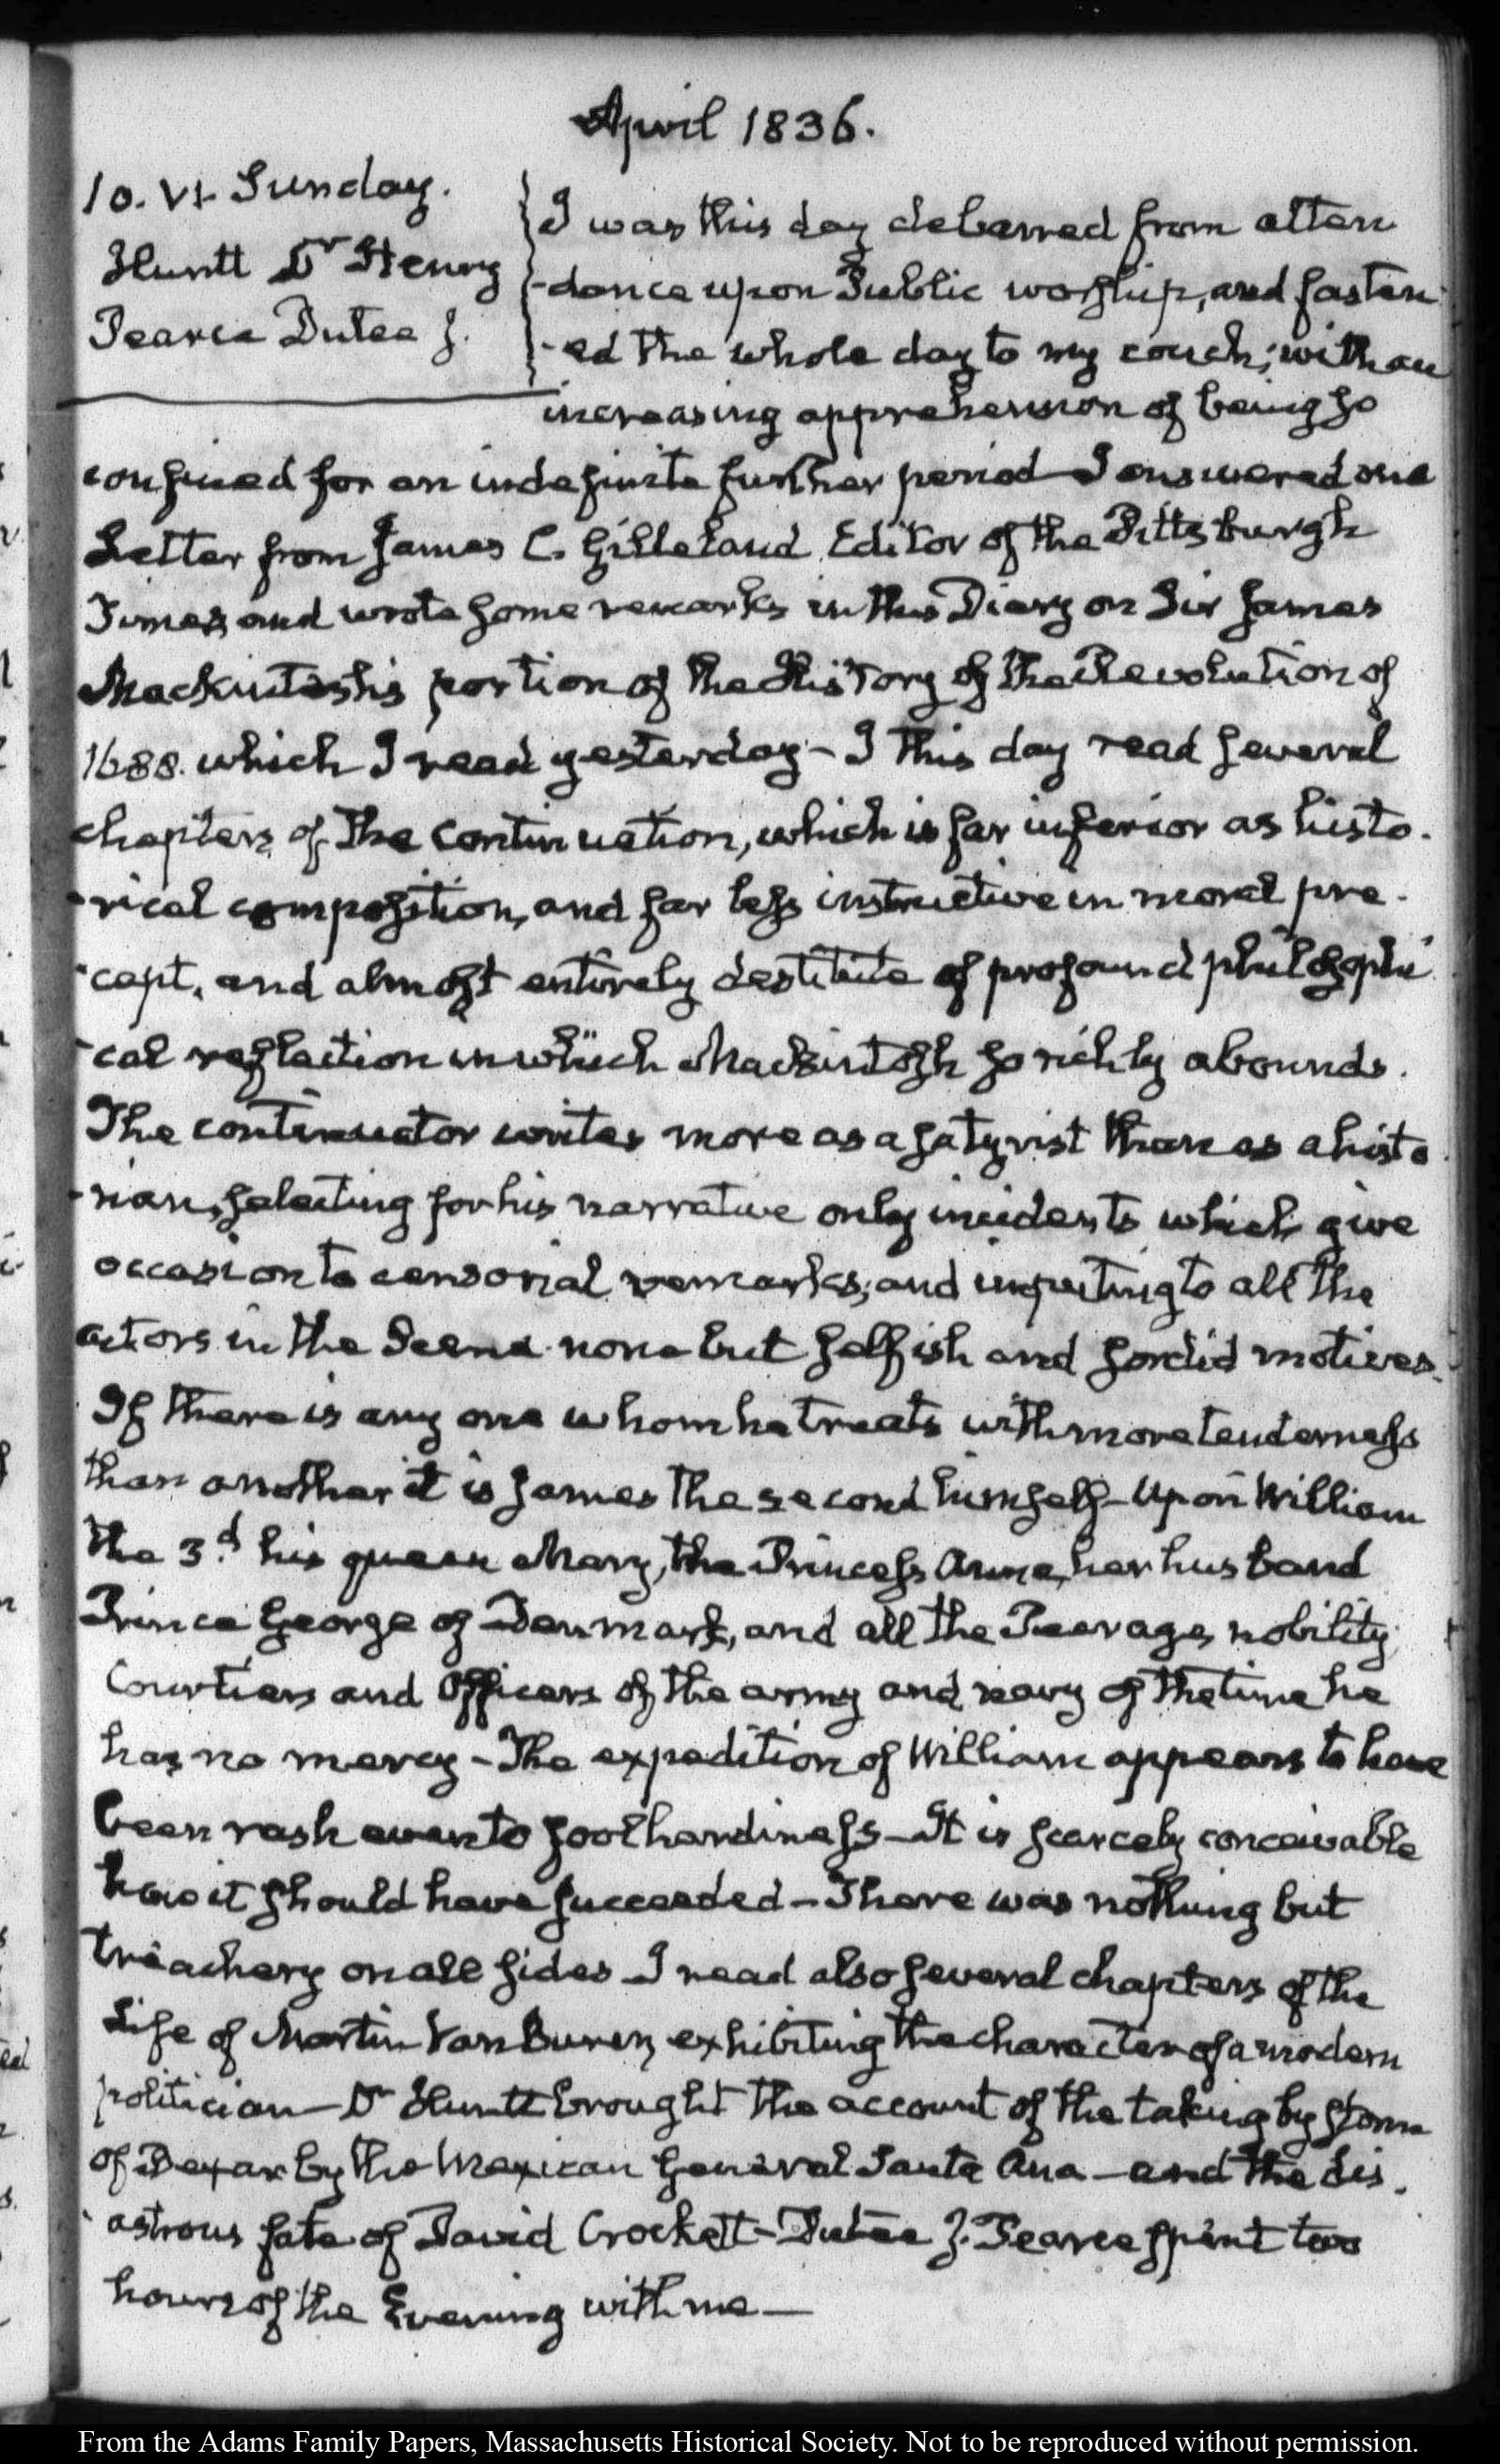 April 1836.
10. VI. Sunday.
Huntt Dr Henry
Pearce Dutee J.
I was this day debarred from atten
-dance upon Public worship, and fasten
-ed the whole day to my couch; with an
increasing apprehension of being so
confined for an indefinite further period I answered one
Letter from James C. Gilleland Editor of the Pittsburgh
Times, and wrote some remarks in this Diary on Sir James
Mackintosh's portion of the History of the Revolution of
1688. which I read yesterday - I this day read several
chapters of the Continuation, which is far inferior as histo-
-rical composition, and far less instructive in moral pre-
-cept, and almost entirely destitute of profound philosophi
-cal reflection in which Mackintosh so richly abounds.
The continuator writes more as a satyrist than as a histo
-rian, selecting for his narrative only incidents which give
occasion to censorial remarks; and imputing to all the
actors in the Scene none but selfish and sordid motives.
If there is any one whom he treats with more tenderness
than another it is James the second himself - Upon William
the 3d. his queen Mary, the Princess Anne, her husband
Prince George of Denmark, and all the Peerage, nobility,
Courtiers and Officers of the army and navy of the time he
has no mercy - The expedition of William appears to have
been rash even to foolhardiness - It is scarcely conceivable
how it should have succeeded - There was nothing but
treachery on all sides - I read also several chapters of the
Life of Martin Van Buren, exhibiting the character of a modern
politician - Dr Huntt brought the account of the taking by storm
of Bexar by the Mexican General Santa Ana - and the dis-
-astrous fate of David Crockett - Dutee J. Pearce spent two
hours of the Evening with me -
From the Adams Family Papers, Massachusetts Historical Society. Not to be reproduced without permission.